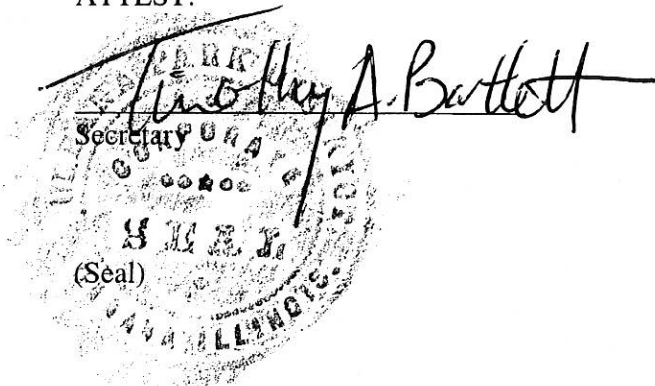 ATTEST:
Timothy A. Bartlett
Secretary
CORPORATE
SEAL
(Seal)
ILLINOIS.